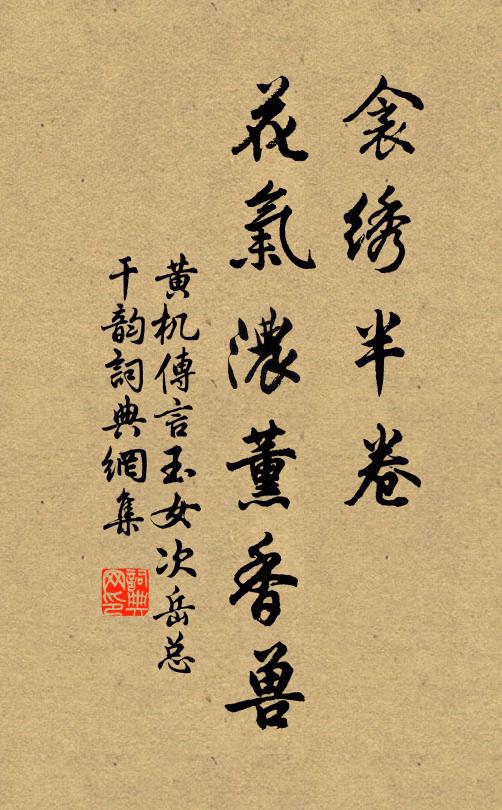 衾绣半卷
花氣濃薰香兽
黄机傳言玉女次岳总
干韵詞典網集
詞典网印